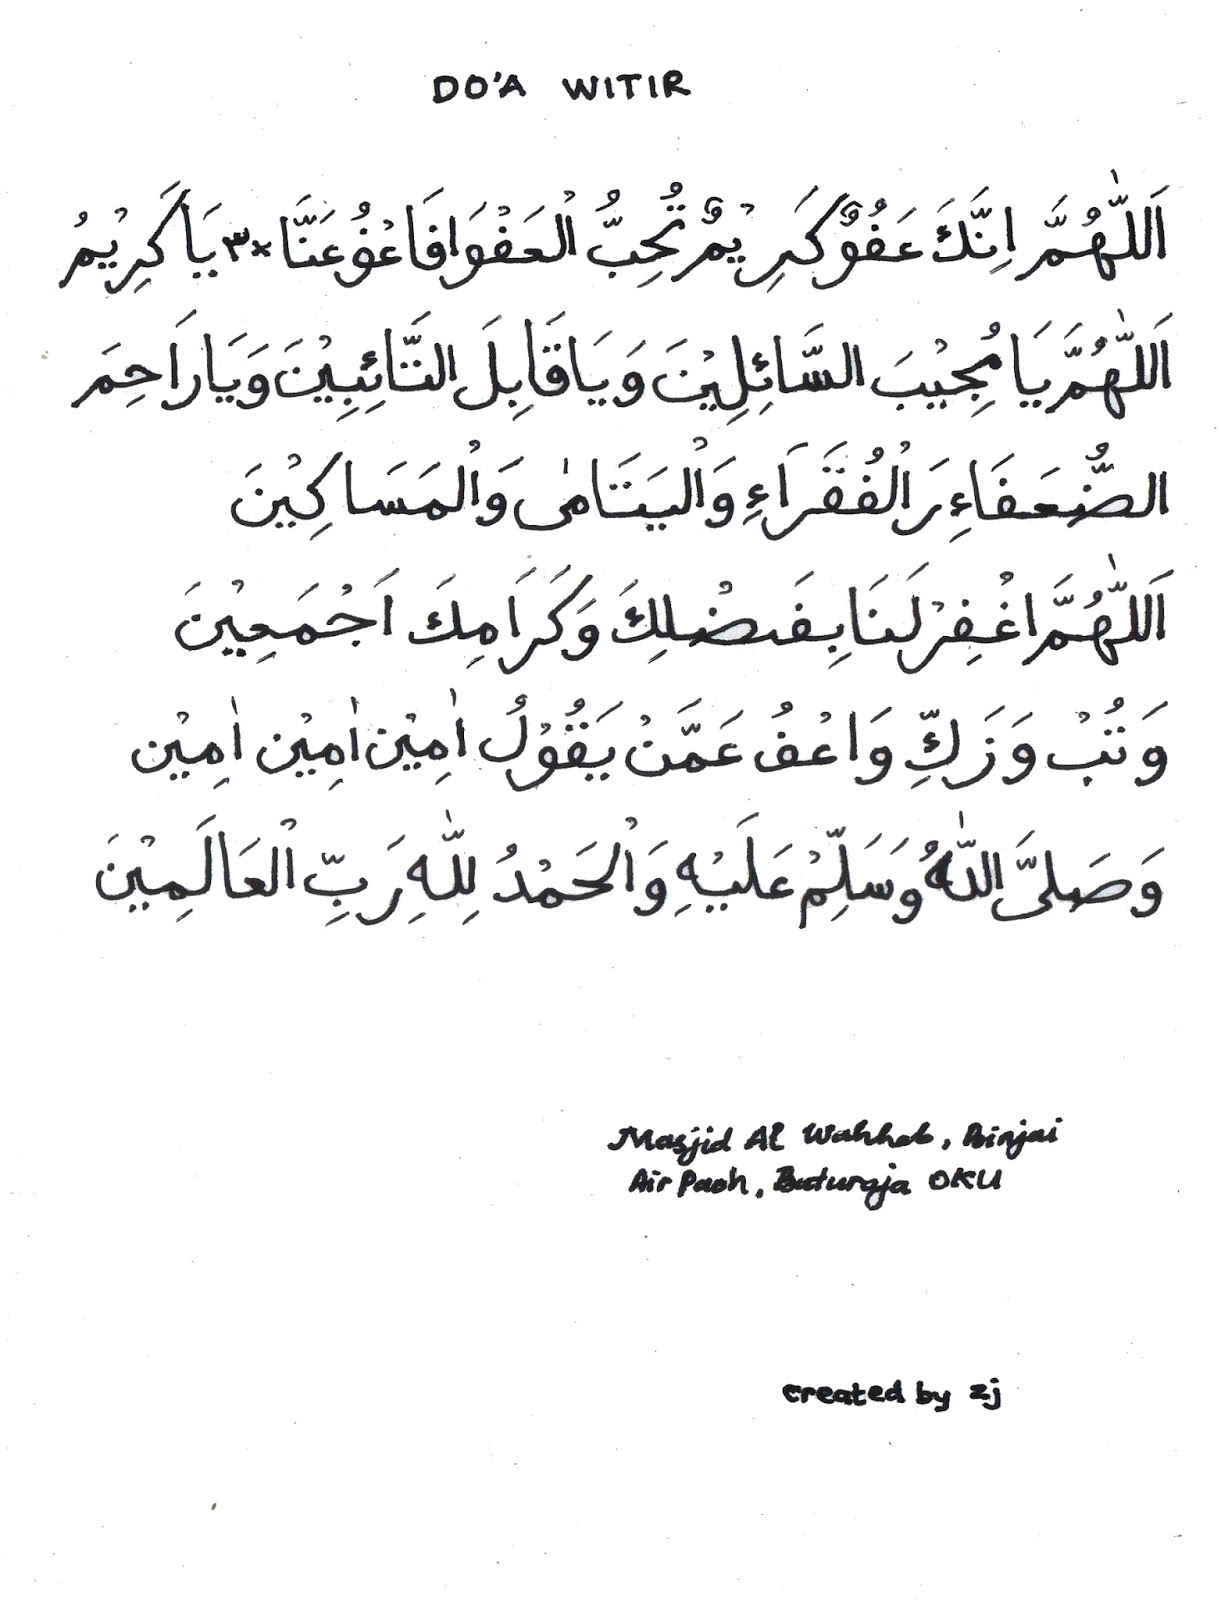 DO'A WITIR
اَللّٰهُمَّ اِنَّكَ عَفُوٌّ كَرِيْمٌ تُحِبُّ الْعَفْوَا فَاعْفُ عَنَّا ×٣ يَا كَرِيْمُ
اَللّٰهُمَّ يَا مُجِيْبَ السَّائِلِيْنَ وَيَا قَابِلَ التَّائِبِيْنَ وَيَا رَاحِمَ
الضُّعَفَاءِ رَالْفُقَرَاءِ وَالْيَتَامٰى وَالْمَسَاكِيْنَ
اَللّٰهُمَّ اغْفِرْ لَنَا بِفَضْلِكَ وَكَرَامِكَ اَجْمَعِيْنَ
وَتُبْ وَزَكِّ وَاعْفُ عَمَّنْ يَقُوْلُ اٰمِيْن اٰمِيْن اٰمِيْن
وَصَلىَّ اللّٰهُ وَسَلِّمْ عَلَيْهِ وَالْحَمْدُ لِلّٰهِ رَبِّ الْعَالَمِيْنَ
Masjid Al Wahhab, Binjai
Air Paoh, Baturaja OKU
created by zj